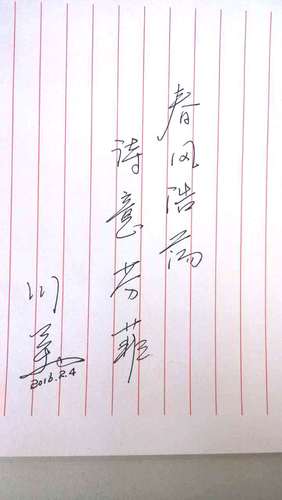 春风浩荡
诗意芳菲
川美
2016.2.4